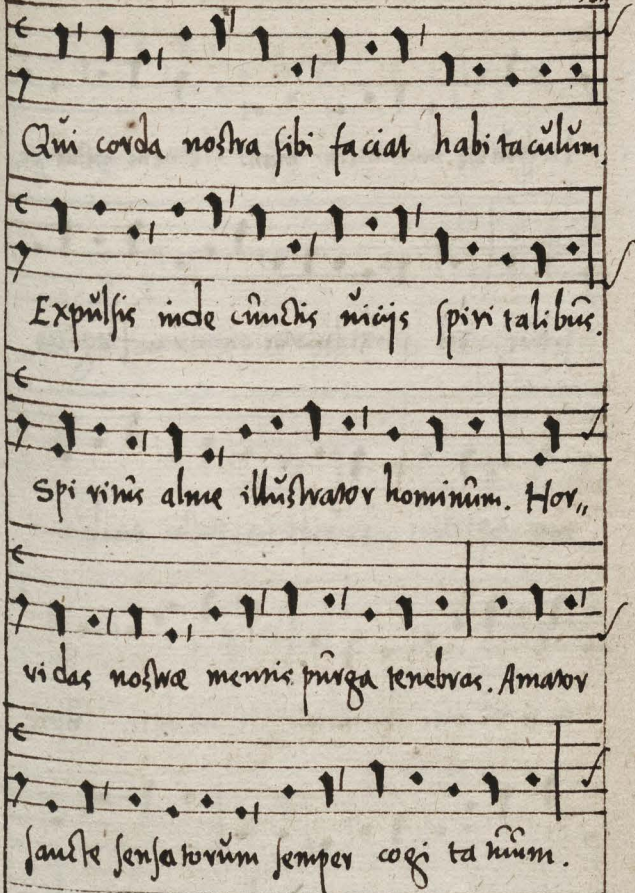 Qui corda nostra sibi faciat habi taculum.
Expulsis inde cunctis uicijs spiri talibus.
Spi ritus alme illustrator hominum. Hor„
ridas nostræ mentis purga tenebras. Amator
sancte sensatorum semper cogi ta tuum.